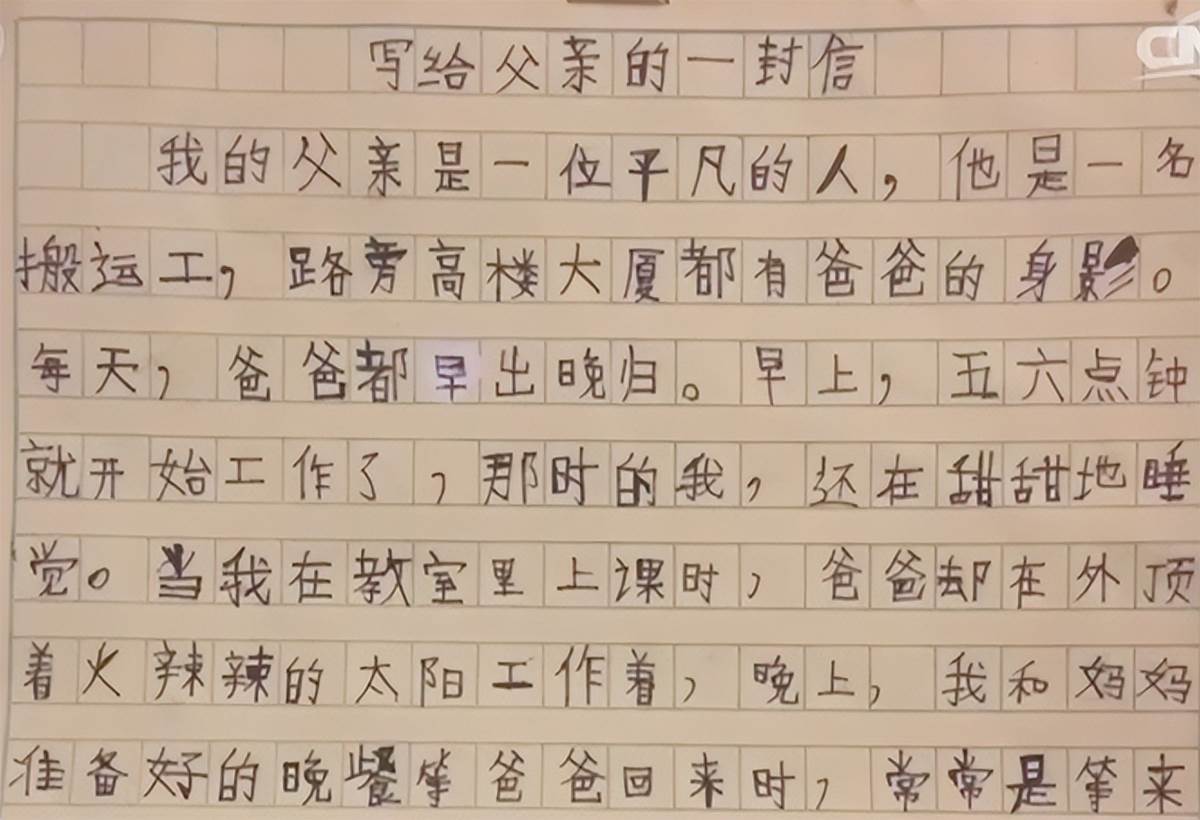 写给父亲的一封信
我的父亲是一位平凡的人，他是一名
搬运工，路旁高楼大厦都有爸爸的身影。
每天，爸爸都早出晚归。早上，五六点钟
就开始工作了，那时的我，还在甜甜地睡
觉。当我在教室里上课时，爸爸却在外顶
着火辣辣的太阳工作着，晚上，我和妈妈
准备好的晚餐等爸爸回来时，常常是等来